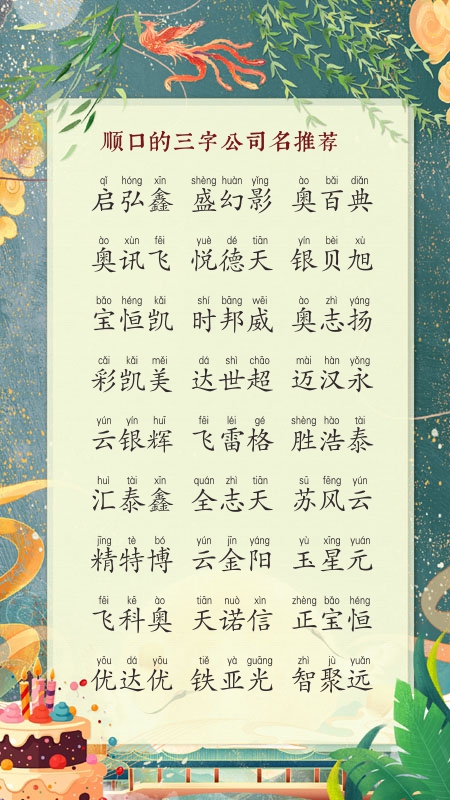 顺口的三字公司名推荐
qǐ hóng xīn shèng huàn yǐng ào bǎi diǎn
启弘鑫 盛幻影 奥百典
ào xùn fēi yuè dé tiān yín bèi xù
奥讯飞 悦德天 银贝旭
bǎo héng kǎi shí bāng wēi ào zhì yáng
宝恒凯 时邦威 奥志扬
cǎi kǎi měi dá shì chāo mài hàn yǒng
彩凯美 达世超 迈汉永
yún yín huī fēi léi gé shèng hào tài
云银辉 飞雷格 胜浩泰
huì tài xīn quán zhì tiān sū fēng yún
汇泰鑫 全志天 苏风云
jīng tè bó yún jīn yáng yù xīng yuán
精特博 云金阳 玉星元
fēi kē ào tiān nuò xìn zhèng bǎo héng
飞科奥 天诺信 正宝恒
yōu dá yōu tiě yà guāng zhì jù yuǎn
优达优 铁亚光 智聚远